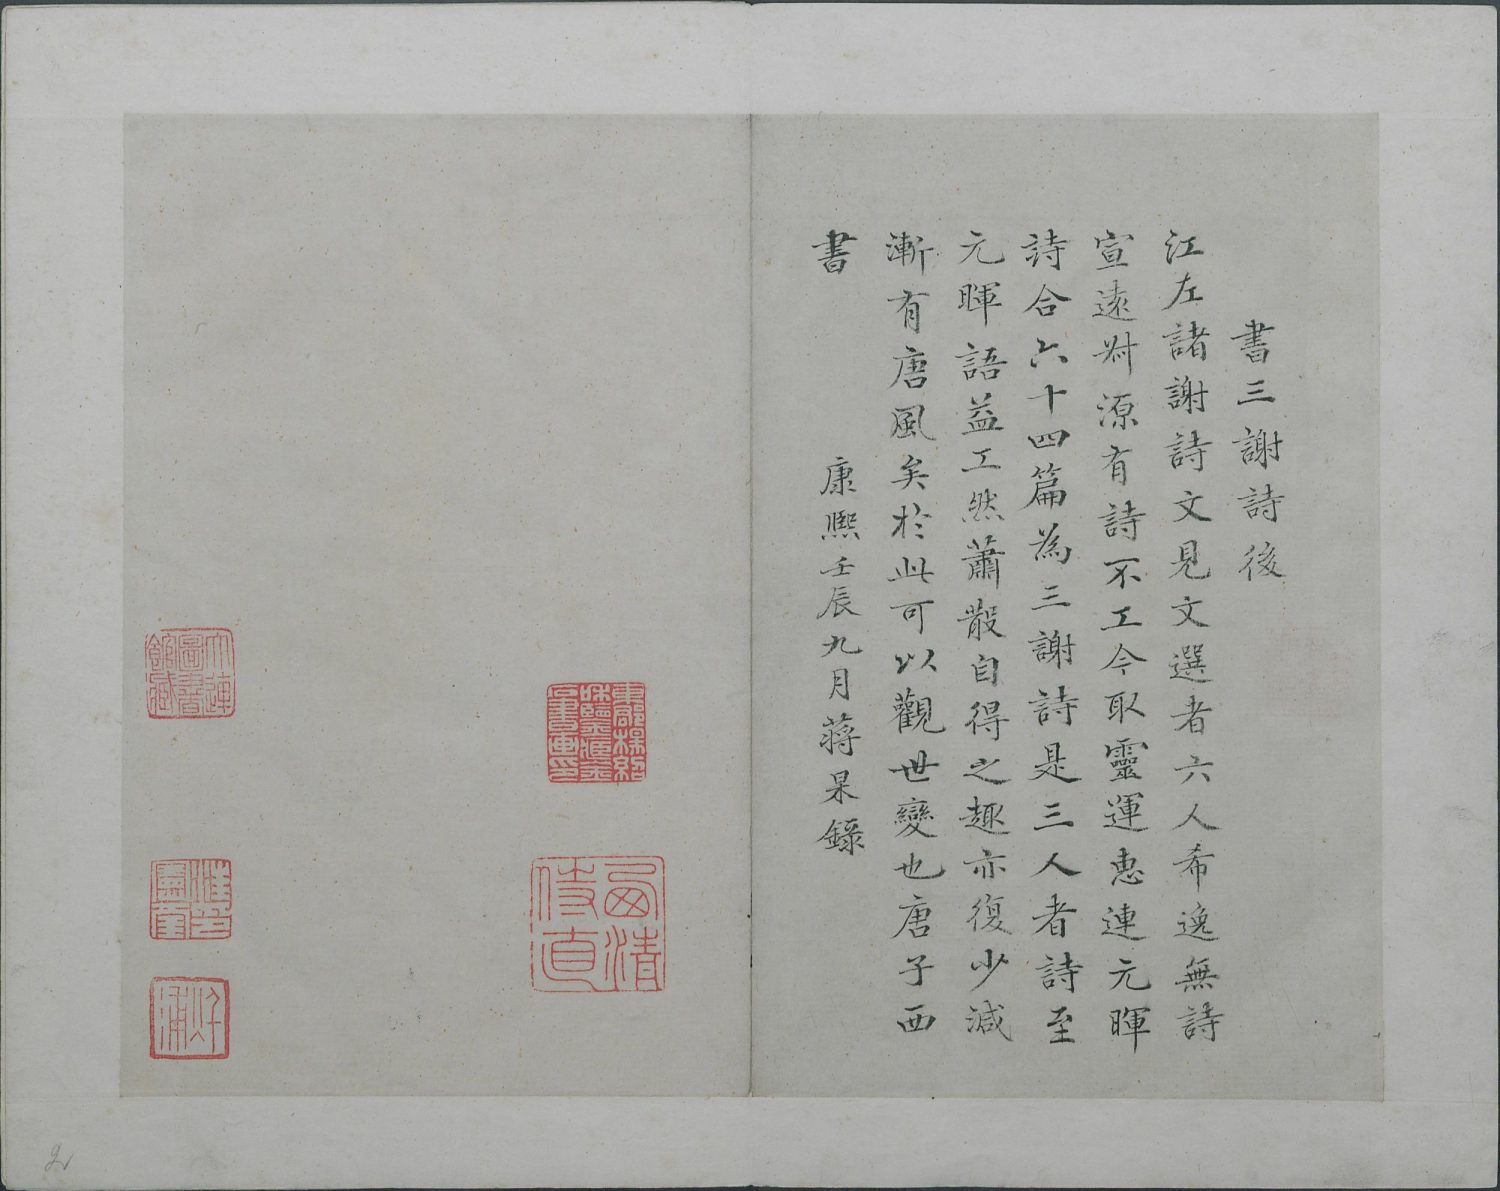 書三謝詩後
江左諸謝詩文見文選者六人希逸無詩
宣遠叔源有詩不工今取靈運惠連元暉
詩合六十四篇為三謝詩是三人者詩至
元暉語益工然蕭散自得之趣亦復少減
漸有唐風矣於此可以觀世變也唐子西
書
康熙壬辰九月蔣杲錄
東郡楊紹和鑒藏金石書畫印
西清侍直
大連圖書館藏